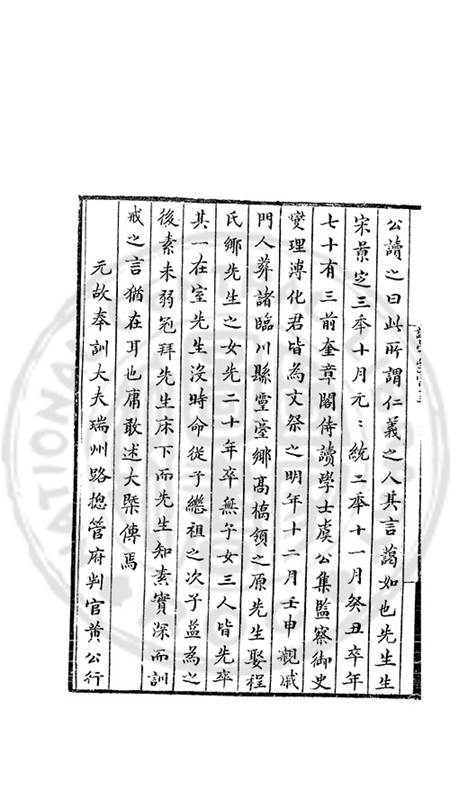 公讀之曰此所謂仁義之人其言藹如也先生生
宋景定三年十月元元統二年十一月癸丑卒年
七十有三前奎章閣侍讀學士虞公集監察御史
燮理溥化君皆為文祭之明年十二月壬申親戚
門人葬諸臨川縣靈臺鄉髙橋領之原先生娶程
氏鄉先生之女先二十年卒無子女三人皆先卒
其一在室先生沒時命從子繼祖之次子益為之
後素未弱冠拜先生床下而先生知素實深而訓
戒之言猶在耳也庸敢述大槩傳焉
元故奉訓大夫瑞州路揔管府判官黄公行